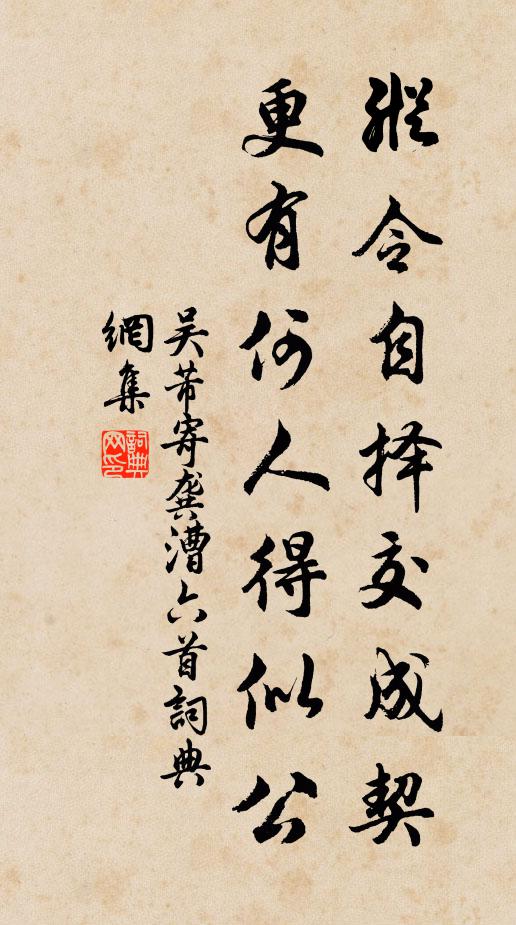 縱令自择交成契
更有何人得似公
吴芾寄龚漕六首詞典
網集
詞典
网印